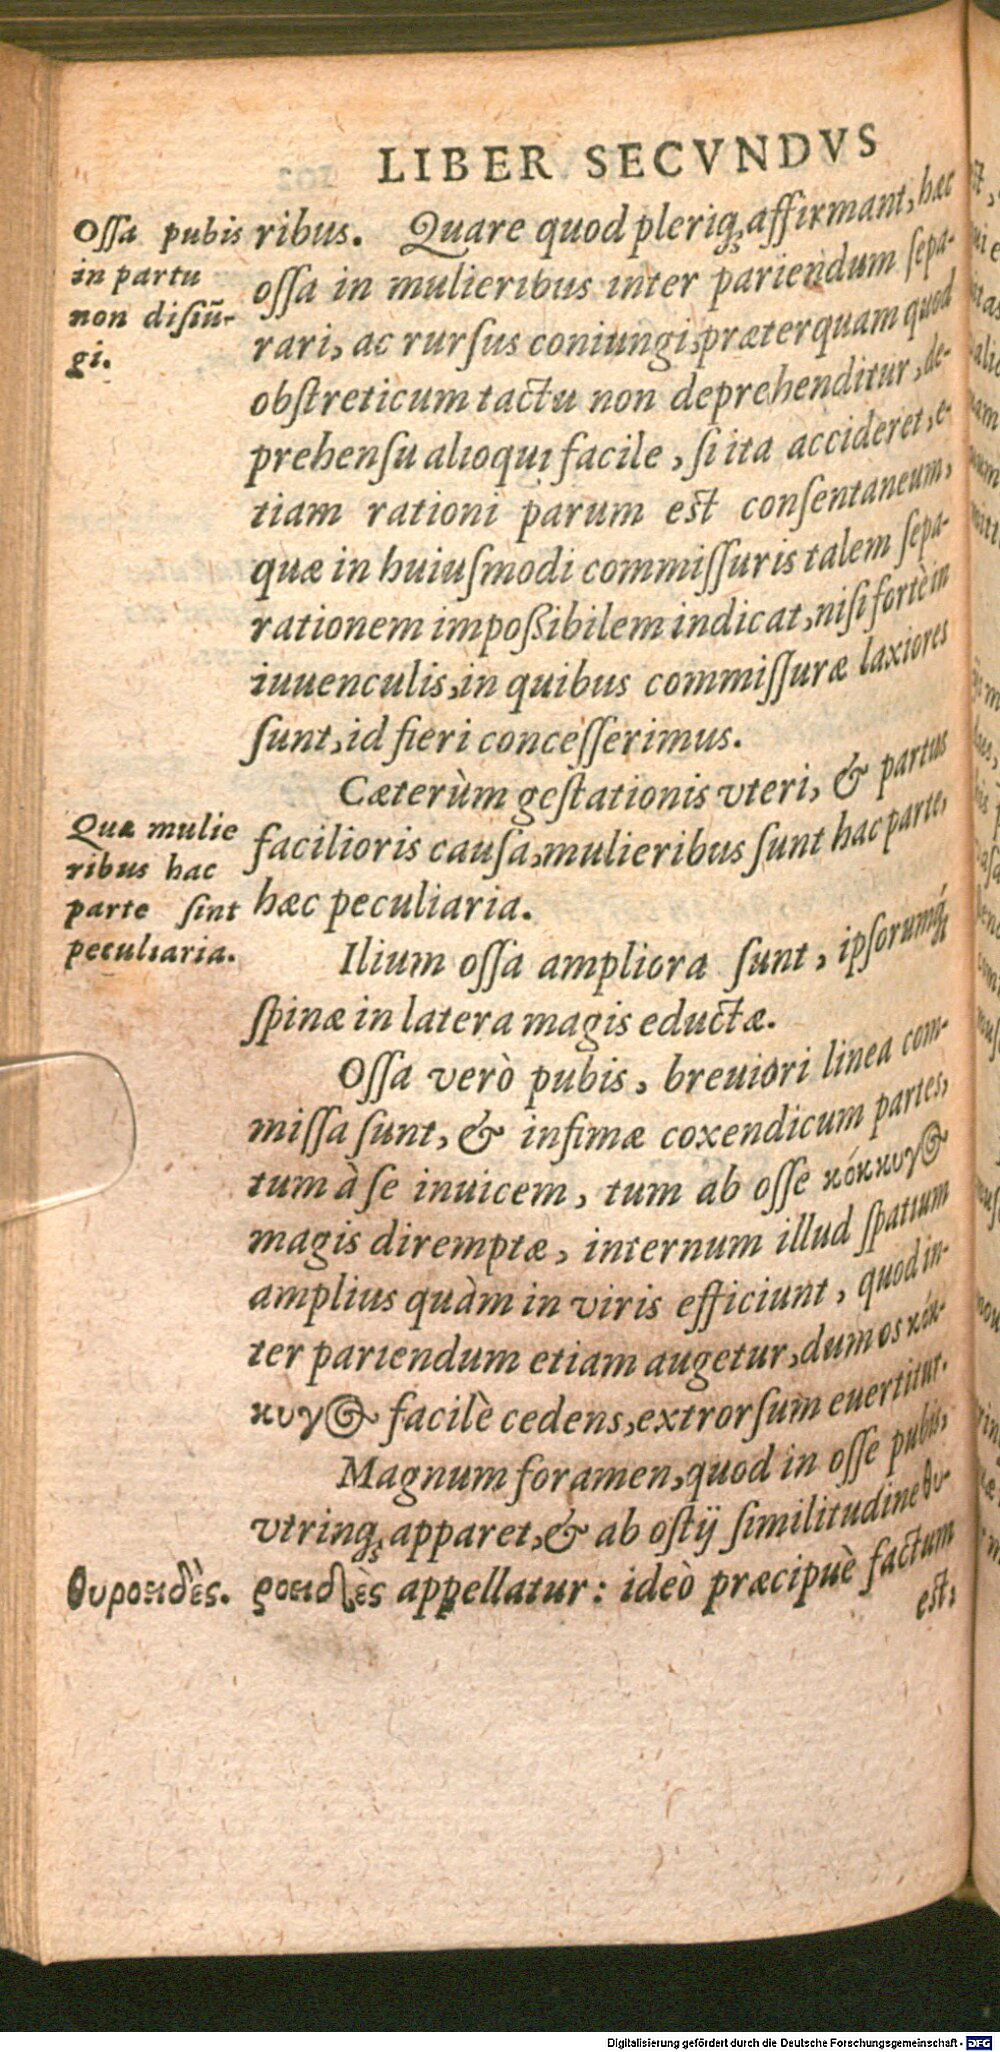 LIBER SECVNDVS
Oſſa pubis
in partu
non diſiū-
gi.
ribus. Quare quod pleriq; affirmant, hæc
oſſa in mulieribus inter pariendum ſepa-
rari, ac rurſus coniungi, præterquam quod
obſtreticum tactu non deprehenditur, de-
prehenſu alioqui facile, ſi ita accideret, e-
tiam rationi parum eſt conſentaneum,
quæ in huiuſmodi commiſſuris talem ſepa-
rationem impoßibilem indicat, niſi fortè in
iuuenculis, in quibus commiſſuræ laxiores
ſunt, id fieri conceſſerimus.
Cæterùm geſtationis vteri, & partus
Quæ mulie
ribus hac
parte ſint
peculiaria.
facilioris cauſa, mulieribus ſunt hac parte,
hæc peculiaria.
Ilium oſſa ampliora ſunt, ipſorumq́;
ſpinæ in latera magis eductæ.
Oſſa verò pubis, breuiori linea com-
miſſa ſunt, & infimæ coxendicum partes,
tum à ſe inuicem, tum ab oſſe κόκκυγος
magis diremptæ, internum illud ſpatium
amplius quàm in viris efficiunt, quod in-
ter pariendum etiam augetur, dum os κόκ-
κυγος facilè cedens, extrorſum euertitur.
Magnum foramen, quod in oſſe pubis,
vtrinq; apparet, & ab oſtij ſimilitudine θυ-
θυροειδὲς.
ροειδὲς appellatur: ideò præcipuè factum
eſt,
Digitalisierung gefördert durch die Deutsche Forschungsgemeinschaft - DFG